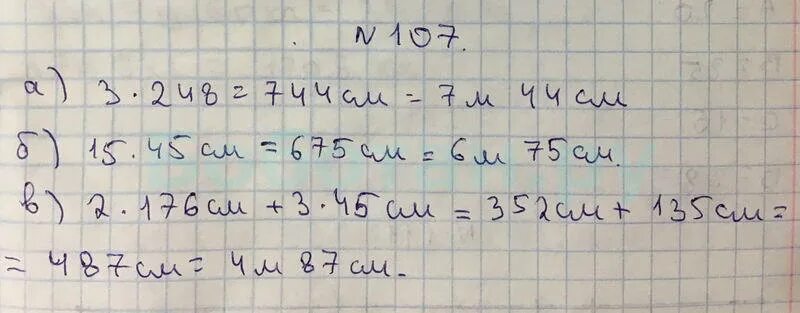 N 107.
а) 3 · 248 = 744 см = 7 м 44 см
б) 15 · 45 см = 675 см = 6 м 75 см.
в) 2 · 176 см + 3 · 45 см = 352 см + 135 см =
= 487 см = 4 м 87 см.